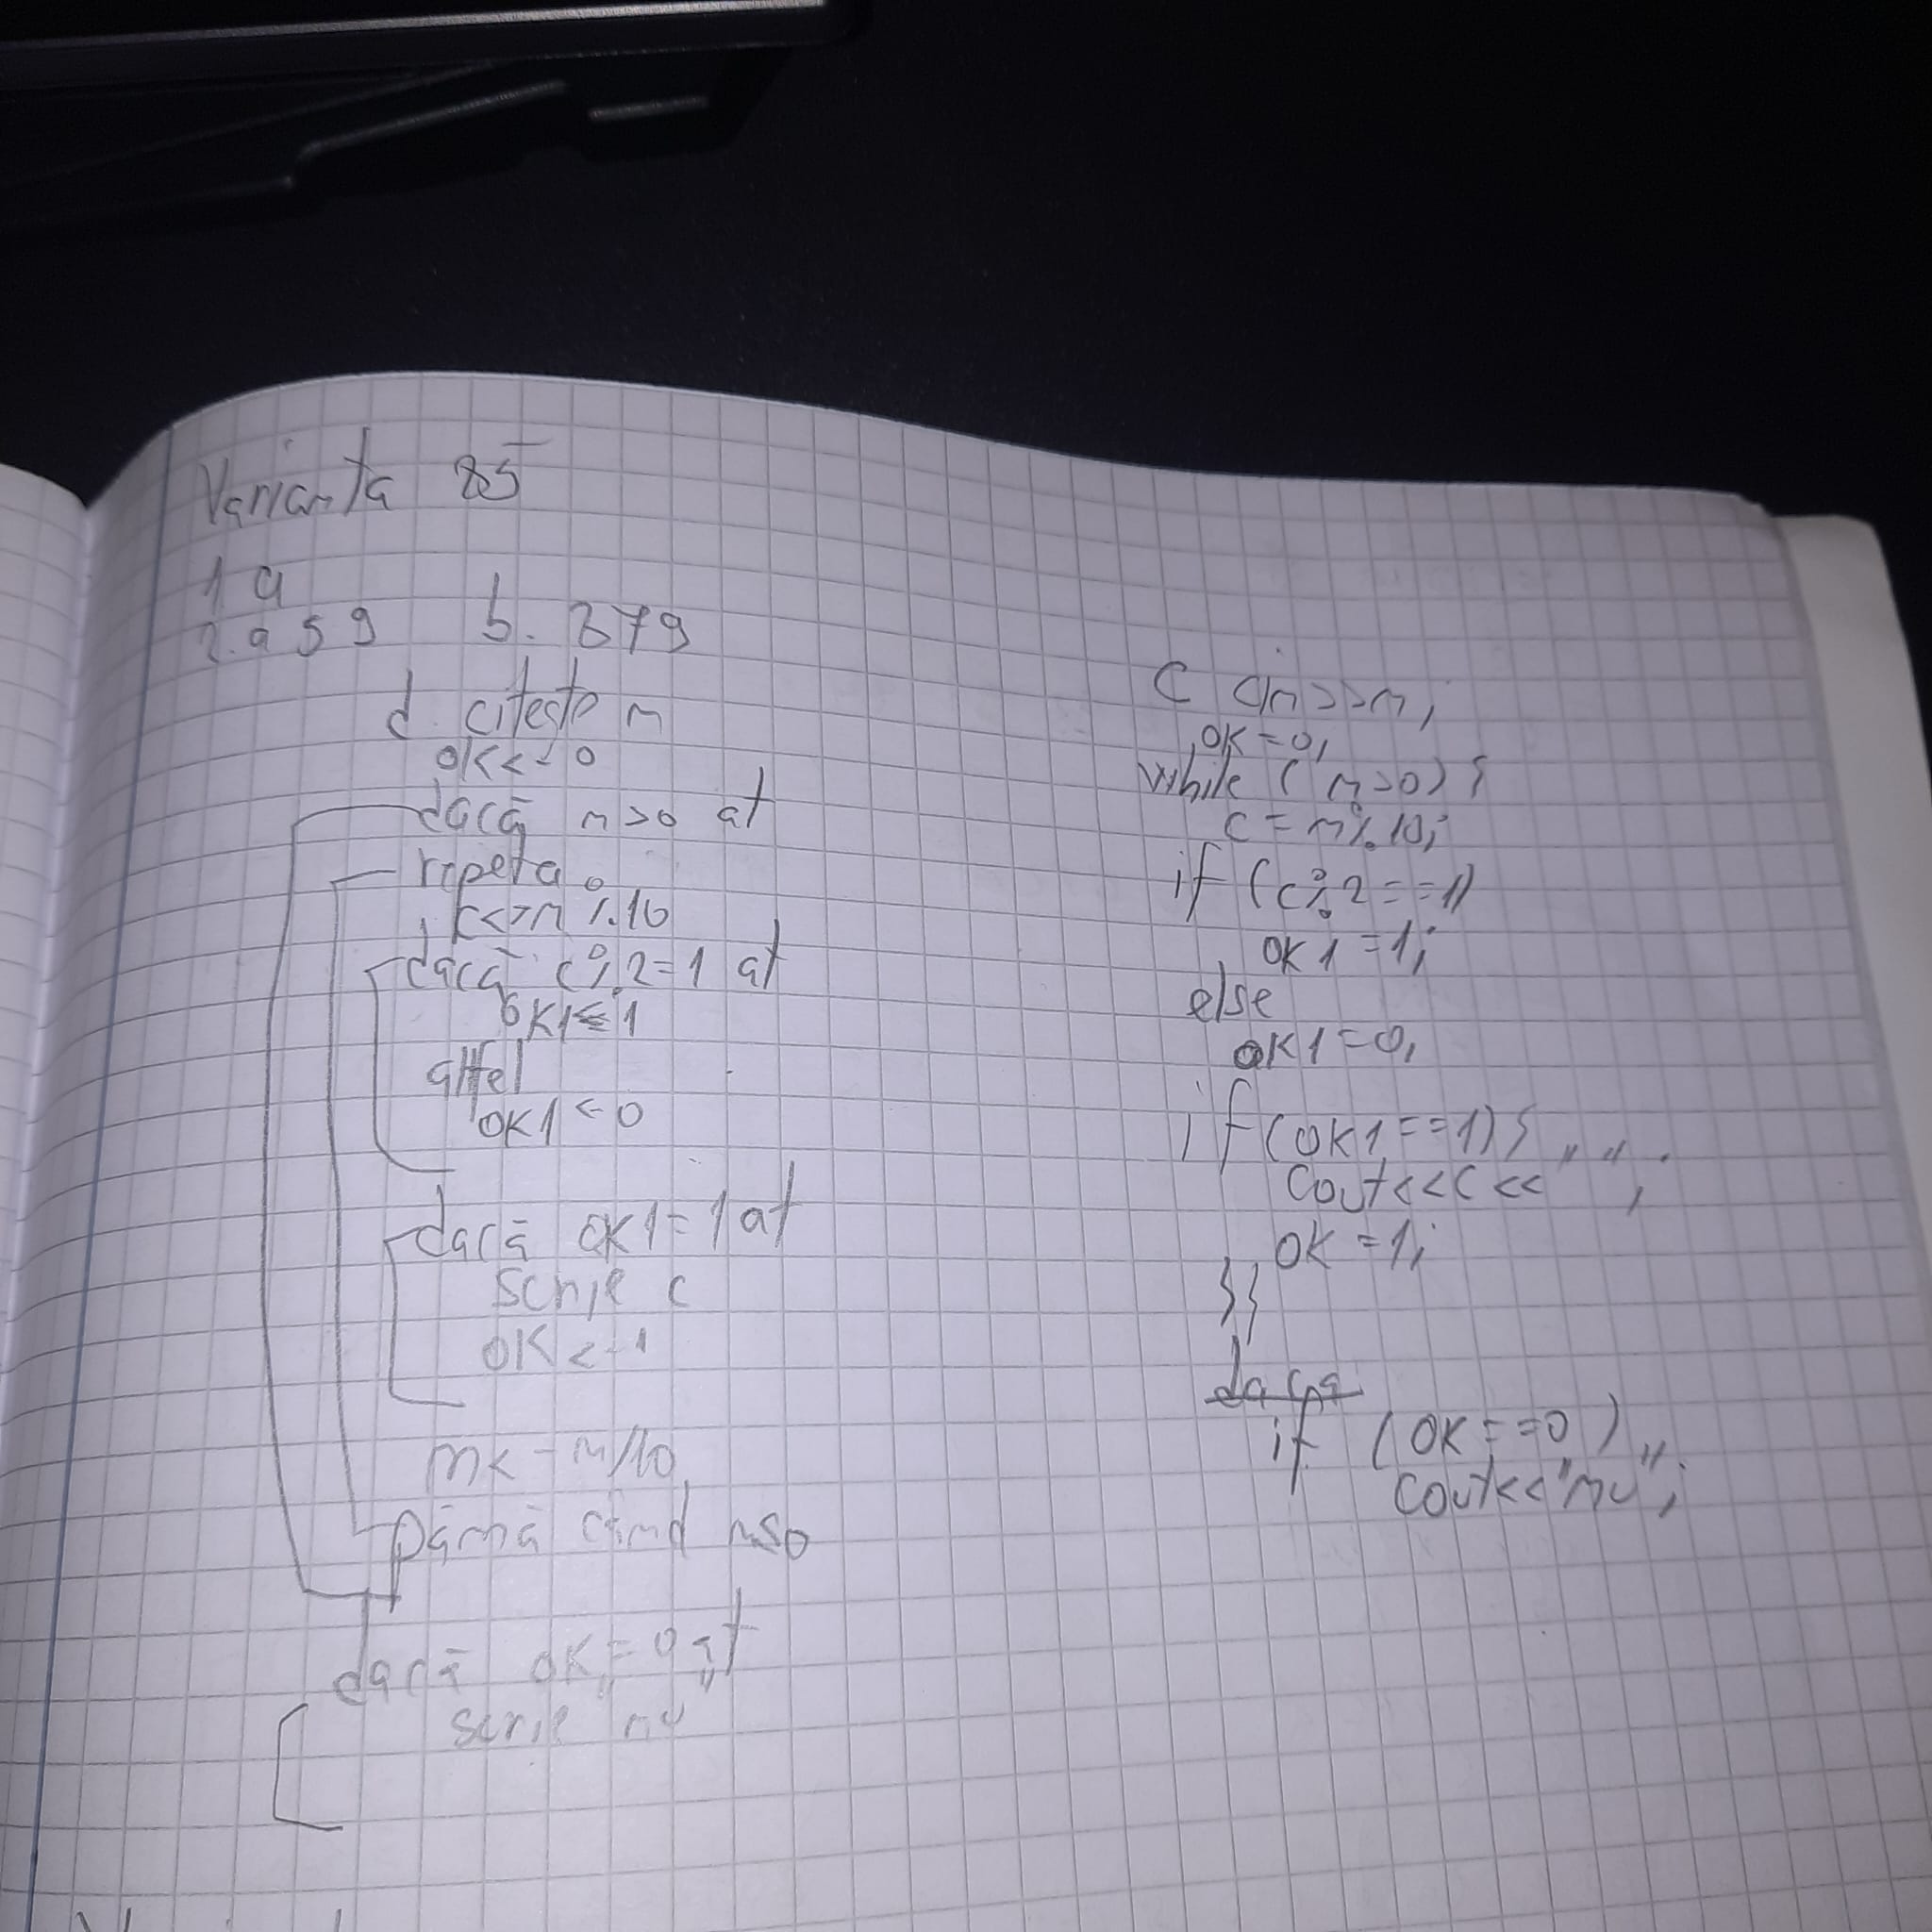 Varianta 85
1 a
2. a 5 9 b. 379
d. citeste n
ok<-0
dacă n>0 at
repeta
c<-n%10
dacă c%2=1 at
ok1<-1
altfel
ok1<-0
dacă ok1=1 at
scrie c
ok<-1
n<-n/10
până când n≤0
dacă ok=0 at
scrie "nu"
C cin>>n;
ok=0;
while (n>0){
c=n%10;
if (c%2==1)
ok1=1;
else
ok1=0;
if(ok1==1){
cout<<c<<" ";
ok=1;
}}
daca
if (ok==0)
cout<<"nu";